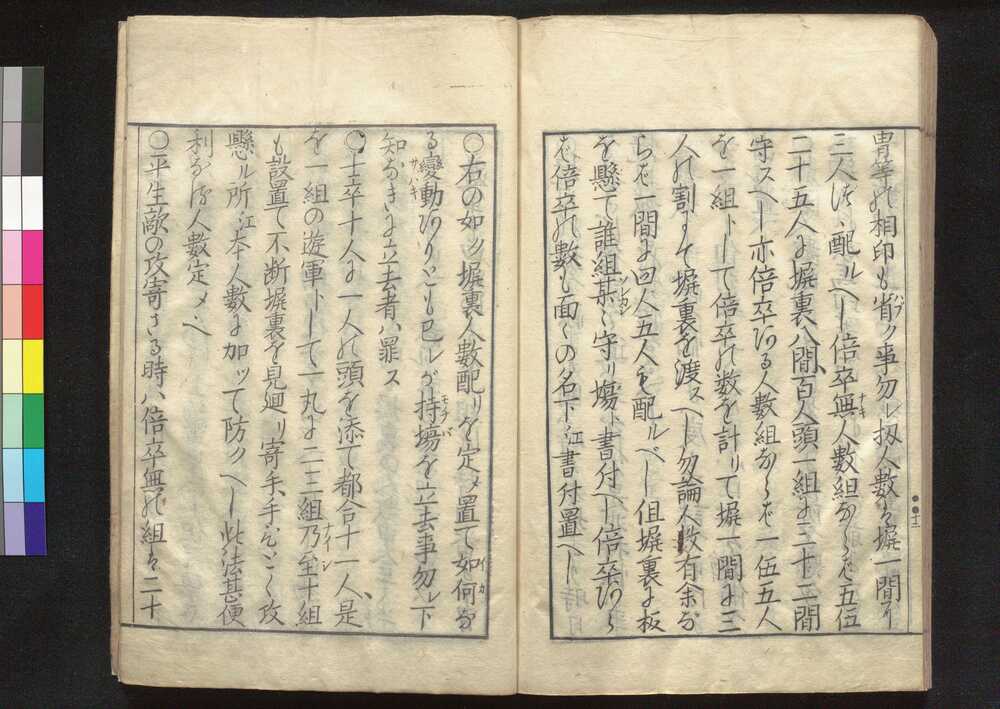 冑等の相印も省ク事勿レ扨人数は塀一間に
三人ほど配ルベし倍卒無人数組ならば五伍
二十五人に塀裏八間、百人頭一組に三十二間
守スべし亦倍卒ある人数組ならば一伍五人
を一組として倍卒の数を計リて塀一間に三
人の割にて塀裏を渡スべし勿論人数有余な
らば一間に四人五人も配ルべし但塀裏に板
を懸て誰組某々守リ場ト書付べし倍卒あら
ば倍卒の数も面々の名下江書付置べし
〇右の如ク塀裏人数配リを定メ置て如何な
る変動ありとも己レが持場を立去事勿レ下
知なきに立去者ハ罪ス
〇士卒十人に一人の頭を添て都合十一人、是
を一組の遊軍トして一丸に二三組乃至十組
も設置て不断塀裏を見廻リ寄手、手ひどく攻
懸ル所江本人数に加ッて防クべし此法甚便
利なり人数定メべ
〇平生敵の攻寄さる時ハ倍卒無の組は二十